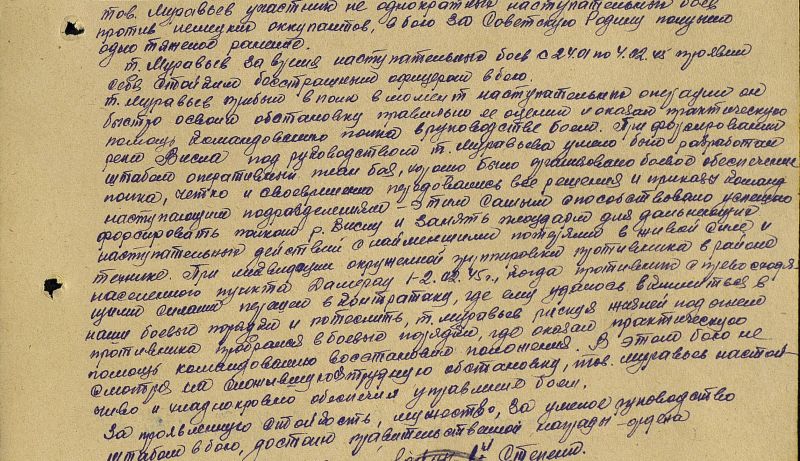 тов. Муравьев участник не однократных наступательных боев
против немецких оккупантов, в боях за Советскую Родину получил
одно тяжелое ранение.
т. Муравьев за время наступательных боев с 24.01 по 4.02.45 проявил
себя стойким бесстрашным офицером в бою.
т. Муравьев прибыл в полк в момент наступательных операций он
быстро освоил обстановку правильно ее оценил и оказал практическую
помощь командованию полка в руководстве боем. При форсировании
реки Висла под руководством т. Муравьева умело был разработан
штабом оперативный план боя, хорошо было организовано боевое обеспечение
полка, четко и своевременно передавались все решения и приказы команд
наступающим подразделениям - этим самым способствовало успешно
форсировать полком р. Вислу и занять плацдарм для дальнейших
наступательных действий с наименьшими потерями в живой силе и
технике. При ликвидации окруженной группировки противника в районе
населенного пункта Дамерау 1-2.02.45 г., когда противник с превосходя-
щими силами перешел в контратаку, где ему удалось вклиниться в
наши боевые порядки и потеснить, т. Муравьев рискуя жизнью под огнем
противника пробрался в боевые порядки, где оказал практическую
помощь командованию восстановить положение. В этом бою не
смотря на сложившуюся трудную обстановку, тов. Муравьев настой-
чиво и хладнокровно обеспечил управление боем.
За проявленную стойкость, мужество, за умелое руководство
штабом в бою, достоин правительственной награды ордена
степени.